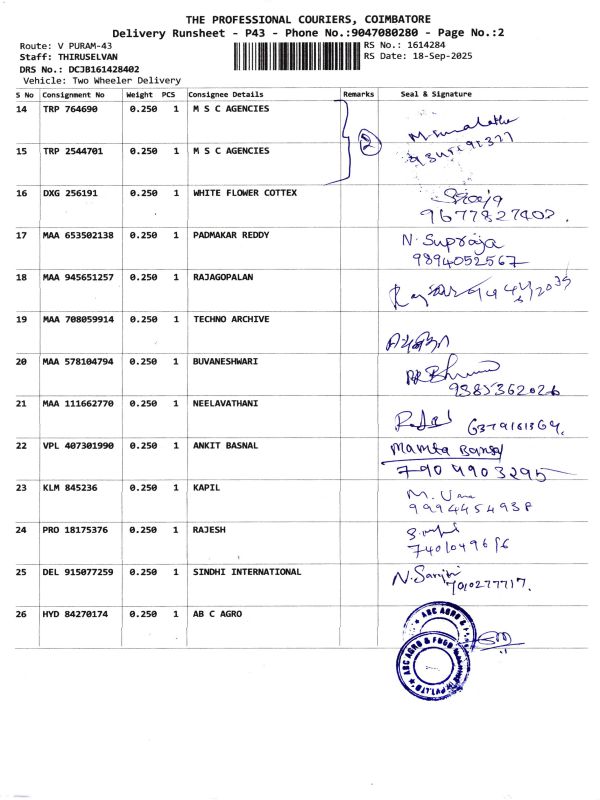 THE PROFESSIONAL COURIERS, COIMBATORE
Delivery Runsheet - P43 - Phone No.:9047080280 - Page No.:2
Route: V PURAM-43 RS No.: 1614284
Staff: THIRUSELVAN RS Date: 18-Sep-2025
DRS No.: DCJB161428402
Vehicle: Two Wheeler Delivery
S No Consignment No Weight PCS Consignee Details Remarks Seal & Signature
14 TRP 764690 0.250 1 M S C AGENCIES
2
15 TRP 2544701 0.250 1 M S C AGENCIES
16 DXG 256191 0.250 1 WHITE FLOWER COTTEX
9677827402.
17 MAA 653502138 0.250 1 PADMAKAR REDDY N. Supraja
9894052567
18 MAA 945651257 0.250 1 RAJAGOPALAN
19 MAA 708059914 0.250 1 TECHNO ARCHIVE
20 MAA 578104794 0.250 1 BUVANESHWARI
9385362026
21 MAA 111662770 0.250 1 NEELAVATHANI
22 VPL 407301990 0.250 1 ANKIT BASNAL Mamta Bansal
7904903295
23 KLM 845236 0.250 1 KAPIL
9994454938
24 PRO 18175376 0.250 1 RAJESH
25 DEL 915077259 1 0.250 SINDHI INTERNATIONAL
7010277717.
26 HYD 84270174 0.250 1 AB C AGRO
ABC AGRO &
ABC AGRO & FOOD